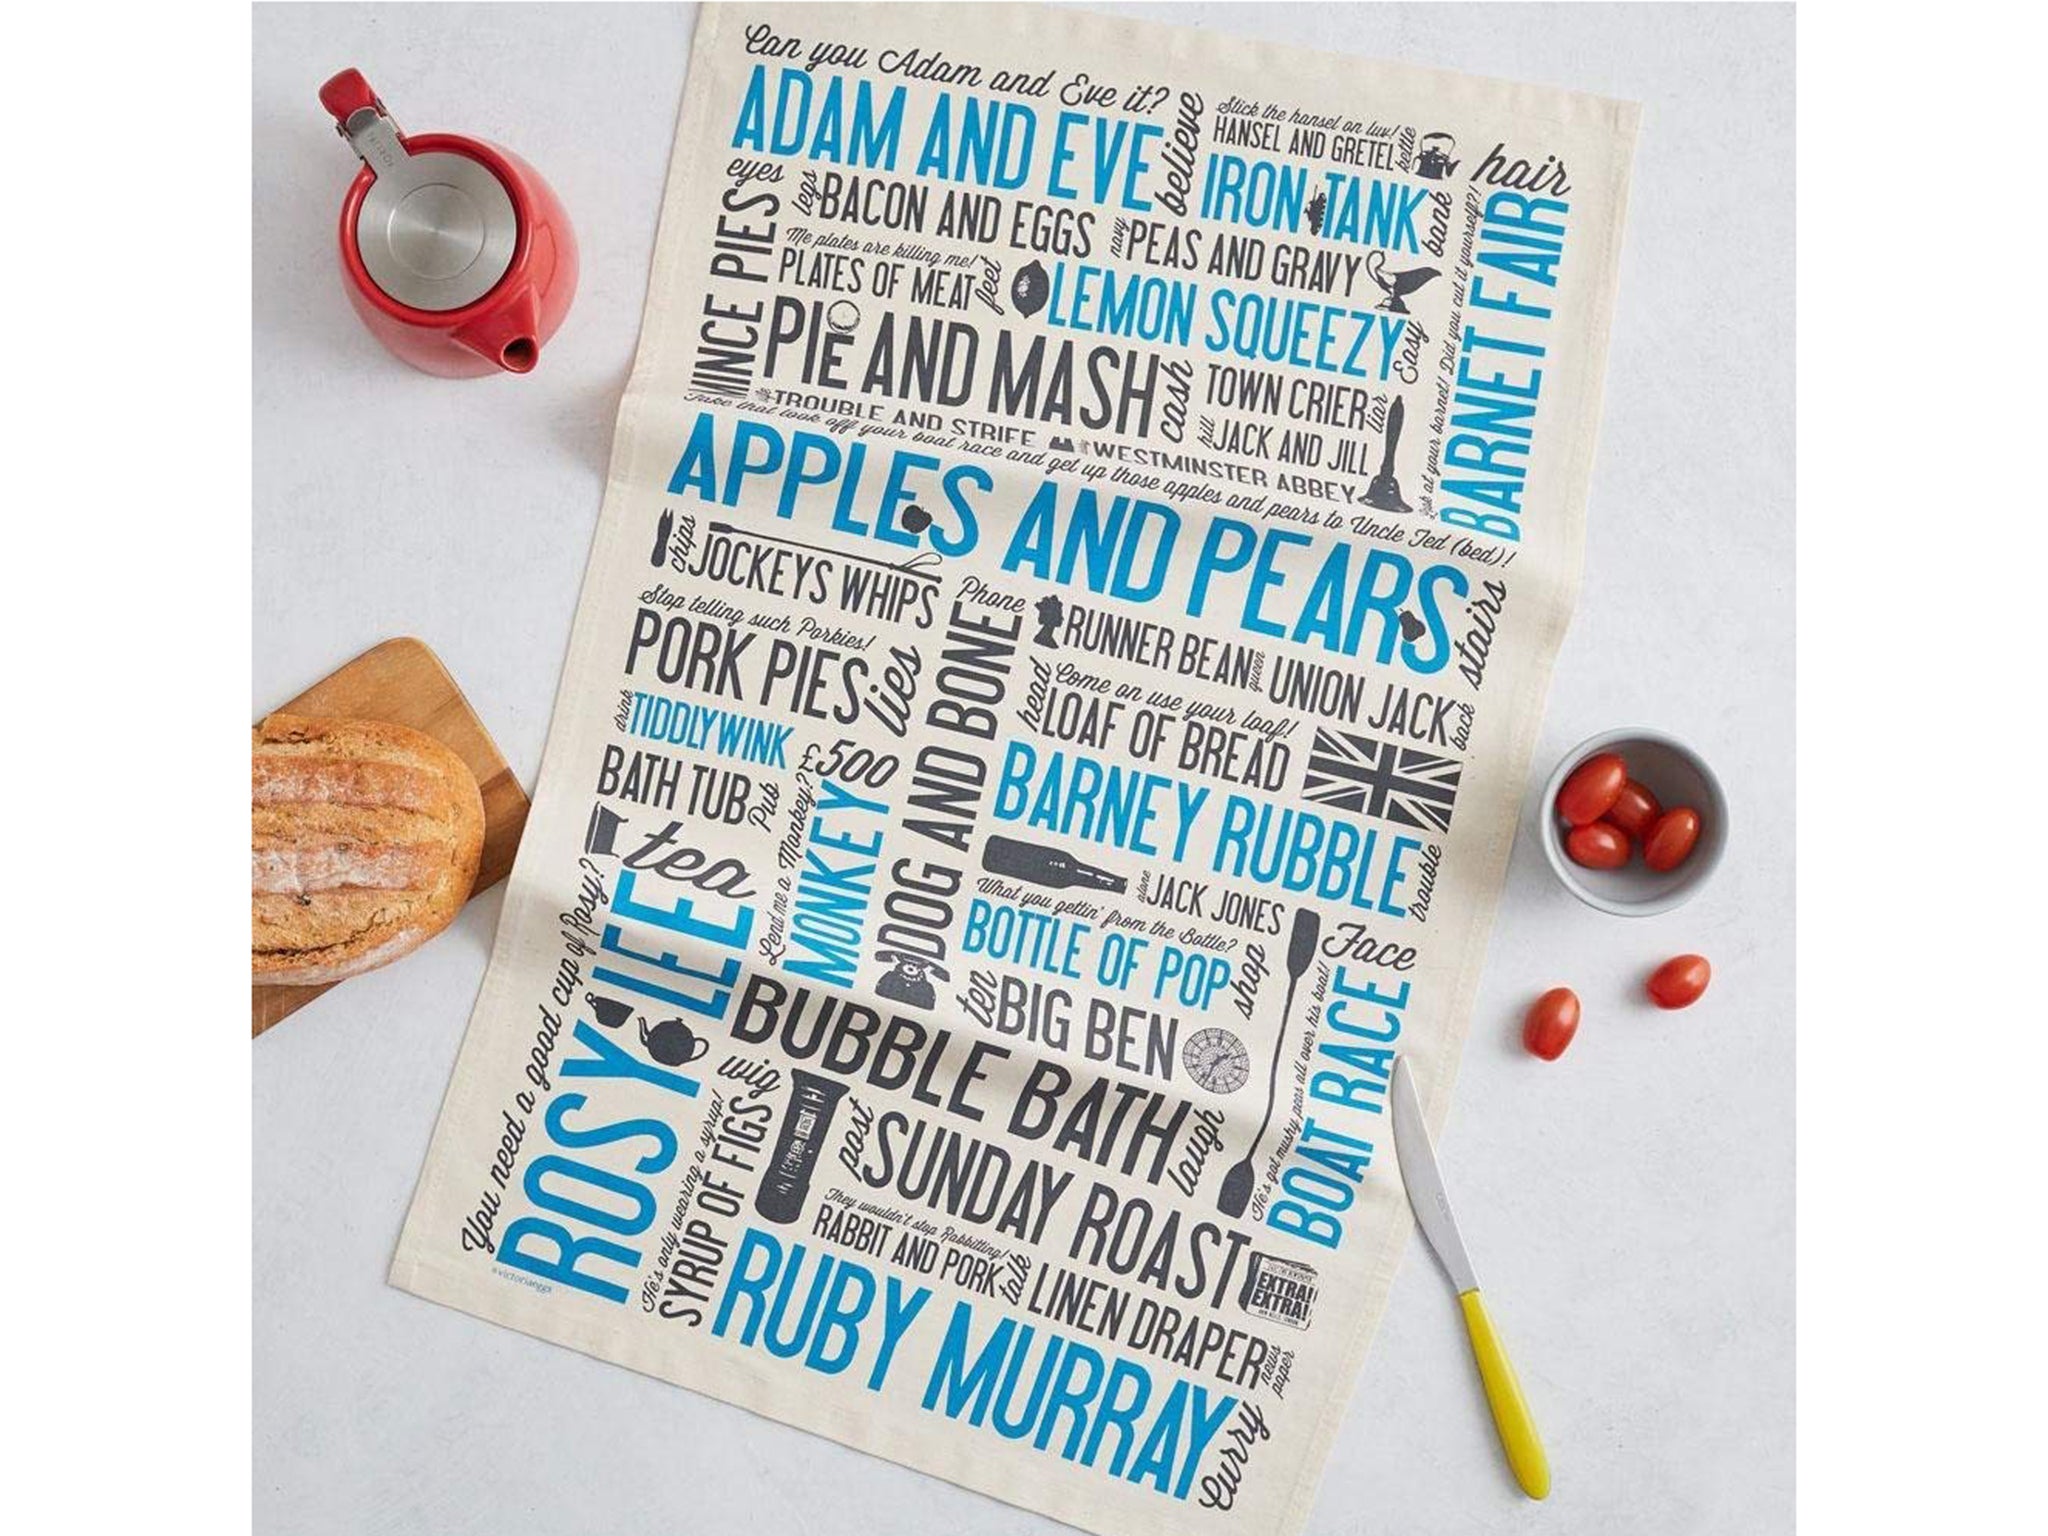 Can you Adam and Eve it?
ADAM AND EVE
believe
Stick the hansel on luv!
HANSEL AND GRETEL
kettle
hair
eyes
legs
BACON AND EGGS
IRON TANK
bank
MINCE PIES
Me plates are killing me!
PLATES OF MEAT
feet
navy
PEAS AND GRAVY
LEMON SQUEEZY
Easy
Look at your barnet! Did you cut it yourself?!
BARNET FAIR
PIE AND MASH
cash
TOWN CRIER
liar
hill
JACK AND JILL
TROUBLE AND STRIFE
WESTMINSTER ABBEY
Take that look off your boat race and get up those apples and pears to Uncle Ted (bed)!
APPLES AND PEARS
stairs
chips
JOCKEYS WHIPS
Stop telling such Porkies!
PORK PIES
lies
Phone
DOG AND BONE
RUNNER BEAN
queen
UNION JACK
back
Come on use your loaf!
head
LOAF OF BREAD
drink
TIDDLYWINK
BATH TUB
Pub
£500
Lend me a Monkey?
MONKEY
BARNEY RUBBLE
trouble
tea
You need a good cup of Rosy?
ROSY LEE
alone
JACK JONES
What you gettin' from the Bottle?
BOTTLE OF POP
shop
ten
BIG BEN
Face
He's got mushy peas all over his boat!
BOAT RACE
BUBBLE BATH
laugh
wig
He's only wearing a syrup!
SYRUP OF FIGS
post
SUNDAY ROAST
They wouldn't stop Rabbitting!
RABBIT AND PORK
talk
EXTRA!
EXTRA!
LINEN DRAPER
news
paper
RUBY MURRAY
Curry
victoriaeggs